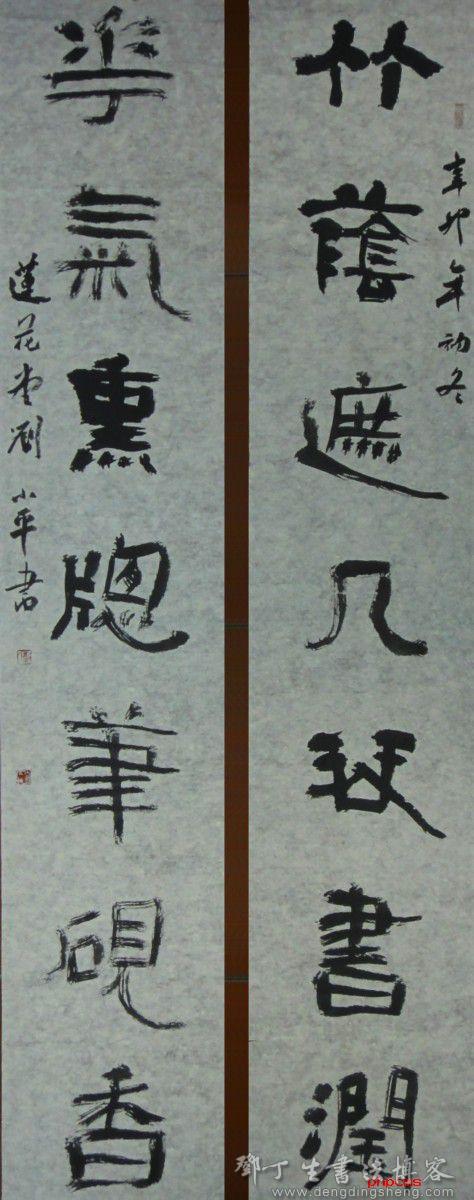 竹蔭遮几琴書潤
辛卯年初冬
華氣熏牕筆硯香
蓮花堂劉小平書
鄧丁生書法博客
www.dengdingsheng.com
phpcms